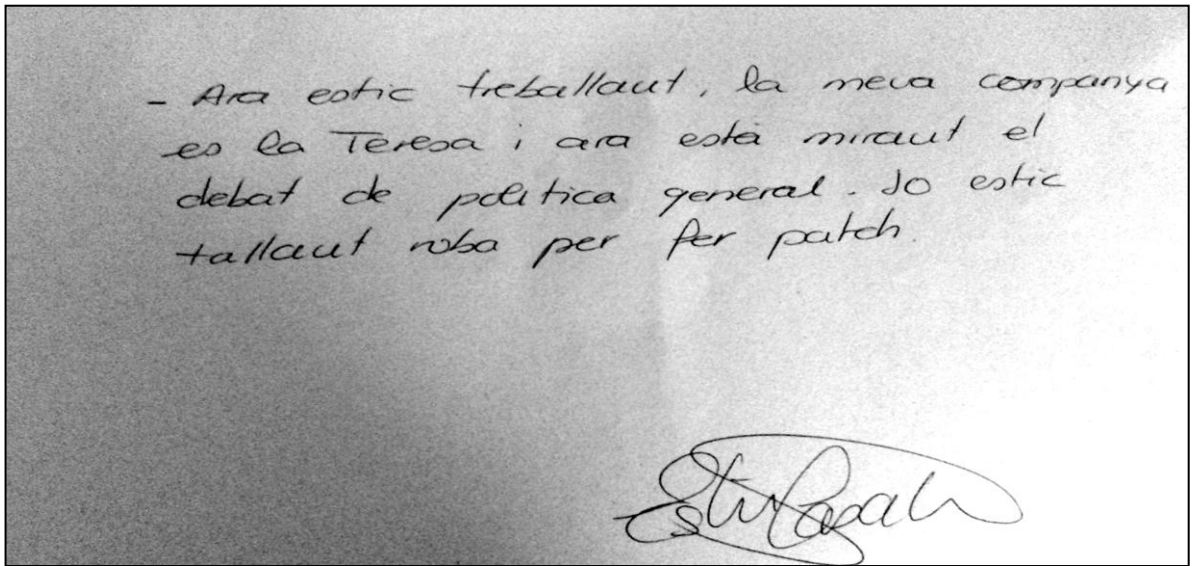 - Ara estic treballant, la meva companya
es la Teresa i ara està mirant el
debat de política general. Jo estic
tallant roba per fer patch.